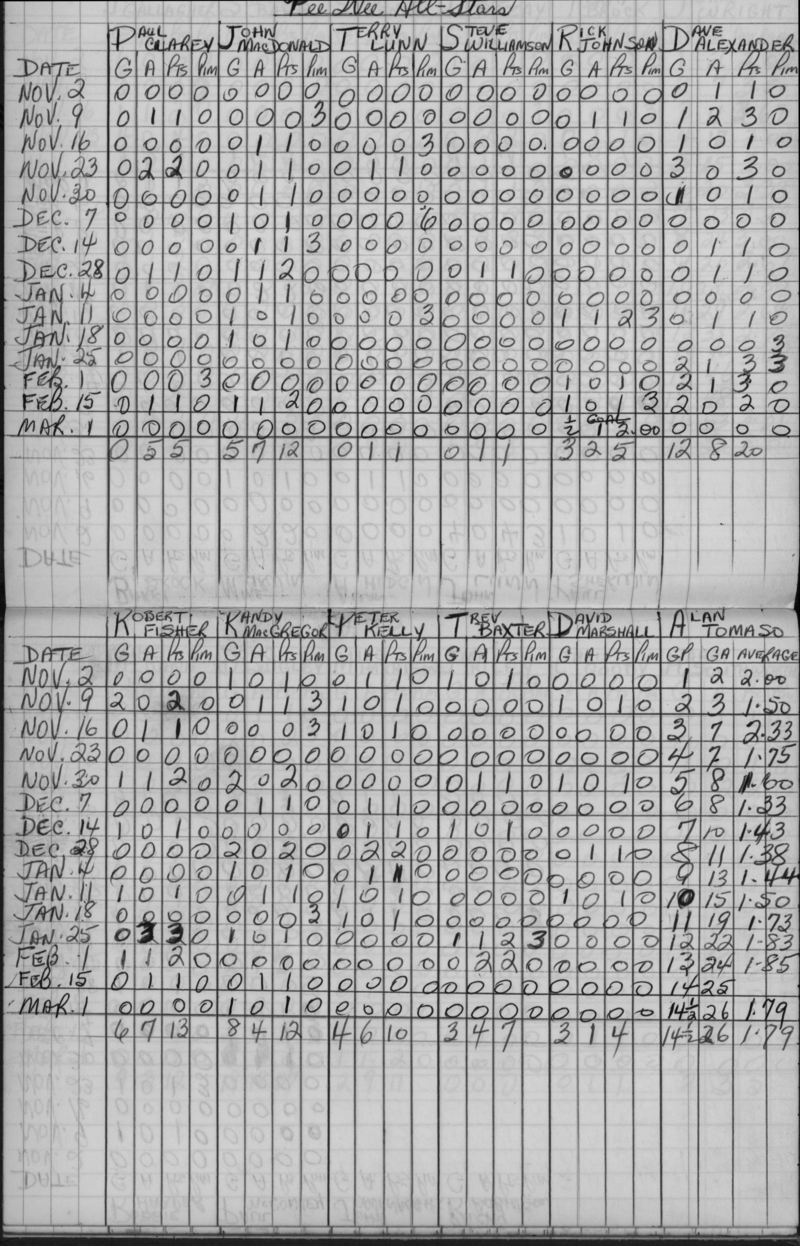 Pee Wee All-Stars
PAUL CLAREY JOHN MACDONALD TERRY LUNN STEVE WILLIAMSON RICK JOHNSON DAVE ALEXANDER
DATE G A Pts Pim G A Pts Pim G A Pts Pim G A Pts Pim G A Pts Pim G A Pts Pim
NOV. 2 0 0 0 0 0 0 0 0 0 0 0 0 0 0 0 0 0 0 0 0 0 1 1 0
NOV. 9 0 1 1 0 0 0 0 3 0 0 0 0 0 0 0 0 0 1 1 0 1 2 3 0
NOV. 16 0 0 0 0 0 1 1 0 0 0 0 3 0 0 0 0. 0 0 0 0 1 0 1 0
NOV. 23 0 2 2 0 0 1 1 0 0 1 1 0 0 0 0 0 0 0 0 0 3 0 3 0
NOV. 30 0 0 0 0 0 1 1 0 0 0 0 0 0 0 0 0 0 0 0 0 1 0 1 0
DEC. 7 0 0 0 0 1 0 1 0 0 0 0 6 0 0 0 0 0 0 0 0 0 0 0 0
DEC. 14 0 0 0 0 0 1 1 3 0 0 0 0 0 0 0 0 0 0 0 0 0 1 1 0
DEC. 28 0 1 1 0 1 1 2 0 0 0 0 0 0 1 1 0 0 0 0 0 0 1 1 0
JAN. 4 0 0 0 0 0 1 1 0 0 0 0 0 0 0 0 0 0 0 0 0 0 0 0 0
JAN. 11 0 0 0 0 1 0 1 0 0 0 0 3 0 0 0 0 1 1 2 3 0 1 1 0
JAN. 18 0 0 0 0 1 0 1 0 0 0 0 0 0 0 0 0 0 0 0 0 0 0 0 3
JAN. 25 0 0 0 0 0 0 0 0 0 0 0 0 0 0 0 0 0 0 0 0 2 1 3 3
FEB. 1 0 0 0 3 0 0 0 0 0 0 0 0 0 0 0 0 1 0 1 0 2 1 3 0
FEB. 15 0 1 1 0 1 1 2 0 0 0 0 0 0 0 0 0 1 0 1 3 2 0 2 0
MAR. 1 0 0 0 0 0 0 0 0 0 0 0 0 0 0 0 0 ½ GOAL 1 2.00 0 0 0 0
0 5 5 5 7 12 0 1 1 0 1 1 3 2 5 12 8 20
ROBERT FISHER KANDY MACGREGOR PETER KELLY TREV BAXTER DAVID MARSHALL ALAN TOMASO
DATE G A Pts Pim G A Pts Pim G A Pts Pim G A Pts Pim G A Pts Pim GP GA AVERAGE
NOV. 2 0 0 0 0 1 0 1 0 0 1 1 0 1 0 1 0 0 0 0 0 1 2 2.00
NOV. 9 2 0 2 0 0 1 1 3 1 0 1 0 0 0 0 0 1 0 1 0 2 3 1.50
NOV. 16 0 1 1 0 0 0 0 3 1 0 1 0 0 0 0 0 0 0 0 0 3 7 2.33
NOV. 23 0 0 0 0 0 0 0 0 0 0 0 0 0 0 0 0 0 0 0 0 4 7 1.75
NOV. 30 1 1 2 0 2 0 2 0 0 0 0 0 0 1 1 0 1 0 1 0 5 8 1.60
DEC. 7 0 0 0 0 0 1 1 0 0 1 1 0 0 0 0 0 0 0 0 0 6 8 1.33
DEC. 14 1 0 1 0 0 0 0 0 0 1 1 0 1 0 1 0 0 0 0 0 7 10 1.43
DEC. 28 0 0 0 0 2 0 2 0 0 2 2 0 0 0 0 0 0 1 1 0 8 11 1.38
JAN. 4 0 0 0 0 1 0 1 0 0 1 1 0 0 0 0 0 0 0 0 0 9 13 1.44
JAN. 11 1 0 1 0 0 1 1 0 1 0 1 0 0 0 0 0 1 0 1 0 10 15 1.50
JAN. 18 0 0 0 0 0 0 0 3 1 0 1 0 0 0 0 0 0 0 0 0 11 19 1.73
JAN. 25 0 3 3 0 1 0 1 0 0 0 0 0 1 1 2 3 0 0 0 0 12 22 1.83
FEB. 1 1 1 2 0 0 0 0 0 0 0 0 0 0 2 2 0 0 0 0 0 13 24 1.85
FEB. 15 0 1 1 0 0 1 1 0 0 0 0 0 0 0 0 0 0 0 0 0 14 25
MAR. 1 0 0 0 0 1 0 1 0 0 0 0 0 0 0 0 0 0 0 0 0 14½ 26 1.79
6 7 13 8 4 12 4 6 10 3 4 7 3 1 4 14½ 26 1.79